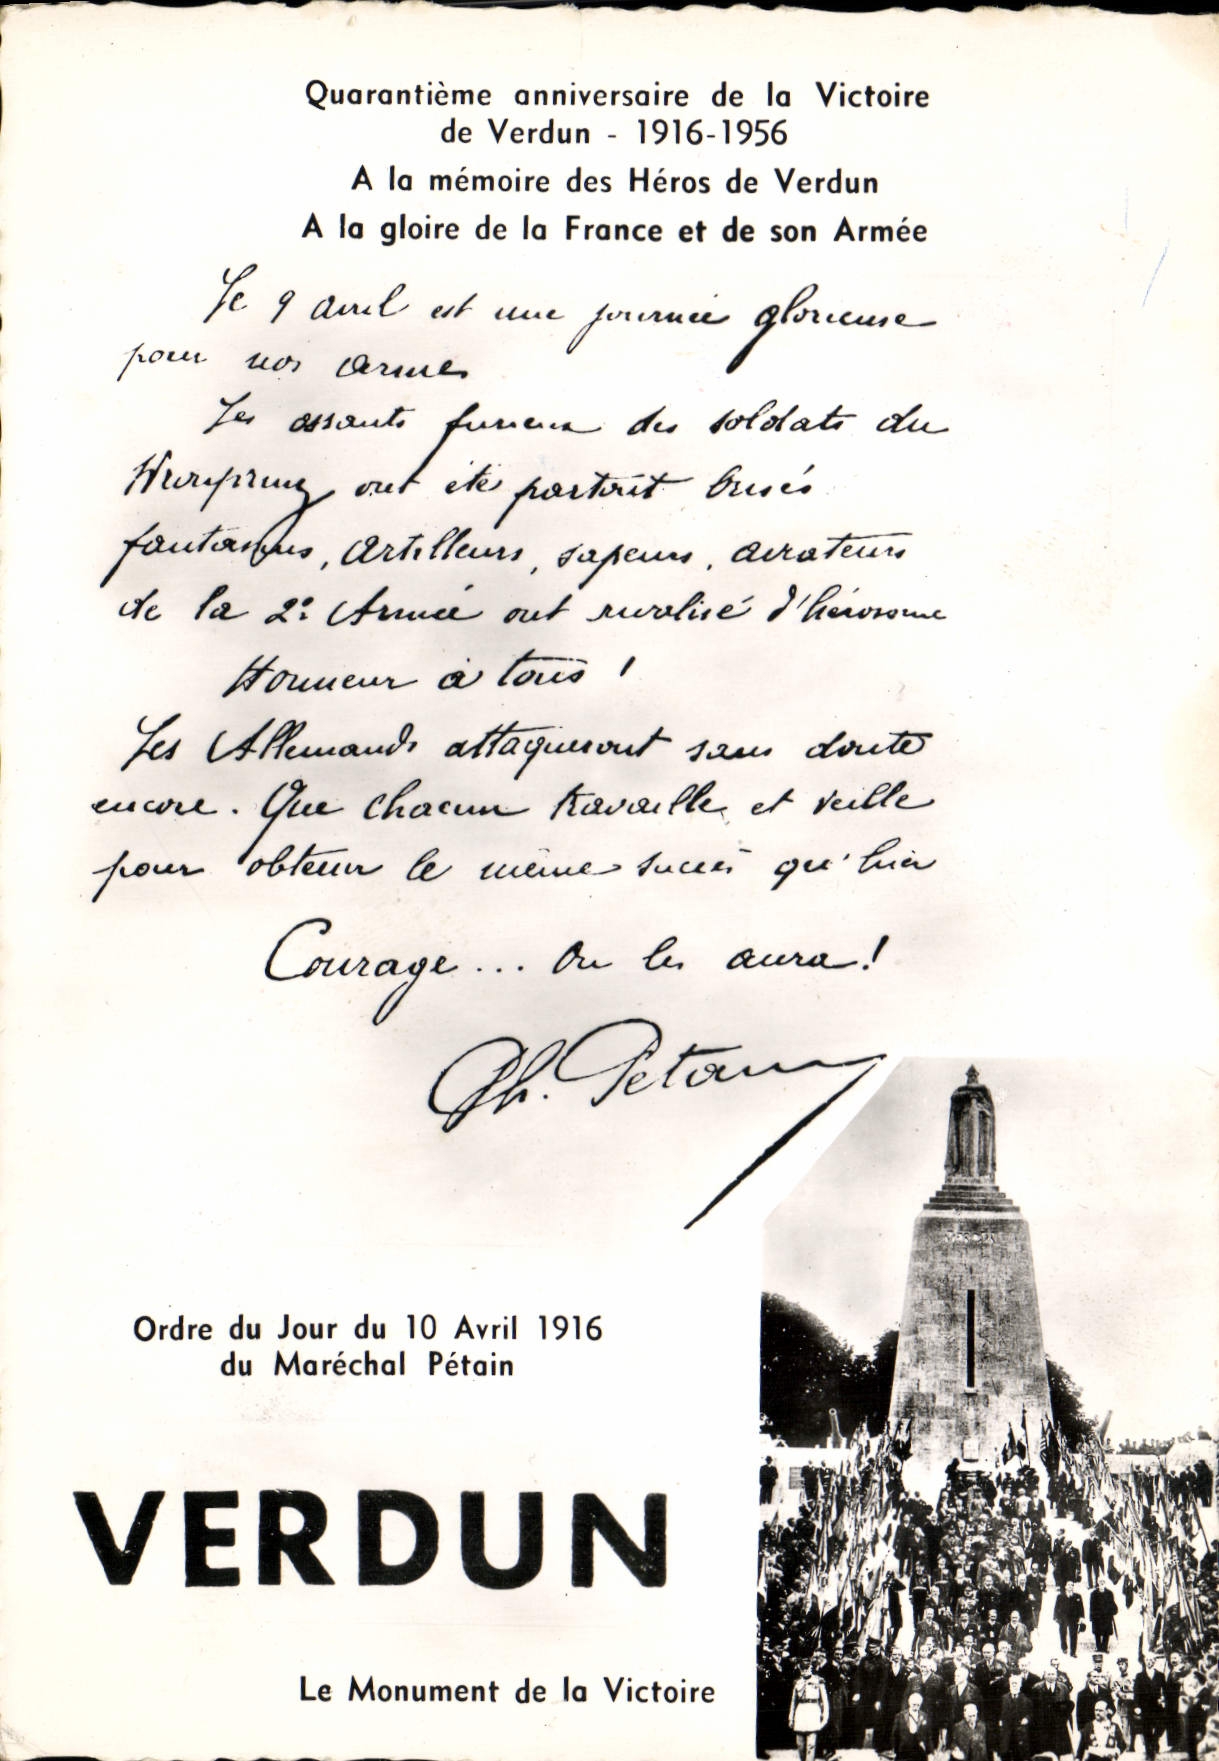 Quarantième anniversaire de la Victoire
de Verdun - 1916-1956
A la mémoire des Héros de Verdun
A la gloire de la France et de son Armée
Le 9 avril est une journée glorieuse
pour nos armes
Les assauts furieux des soldats du
Kronprinz ont été partout brisés
fantassins, artilleurs, sapeurs, aviateurs
de la 2e Armée ont rivalisé d'héroïsme
Honneur à tous !
Les Allemands attaqueront sans doute
encore. Que chacun travaille et veille
pour obtenir le même succès qu'hier
Courage... On les aura !
Ph. Pétain
Ordre du Jour du 10 Avril 1916
du Maréchal Pétain
VERDUN
Le Monument de la Victoire